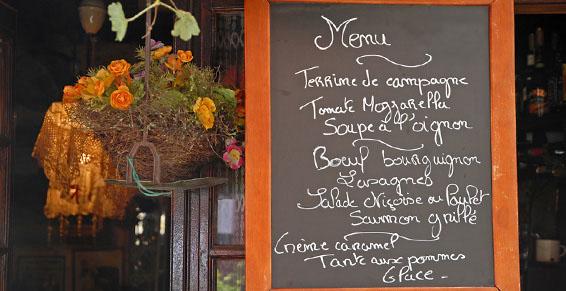 Menu
Terrine de campagne
Tomate Mozzarella
Soupe à l'oignon
Boeuf bourguignon
Lasagnes
Salade Niçoise ou Poulet
Saumon grillé
Crème caramel
Tarte aux pommes
Glace